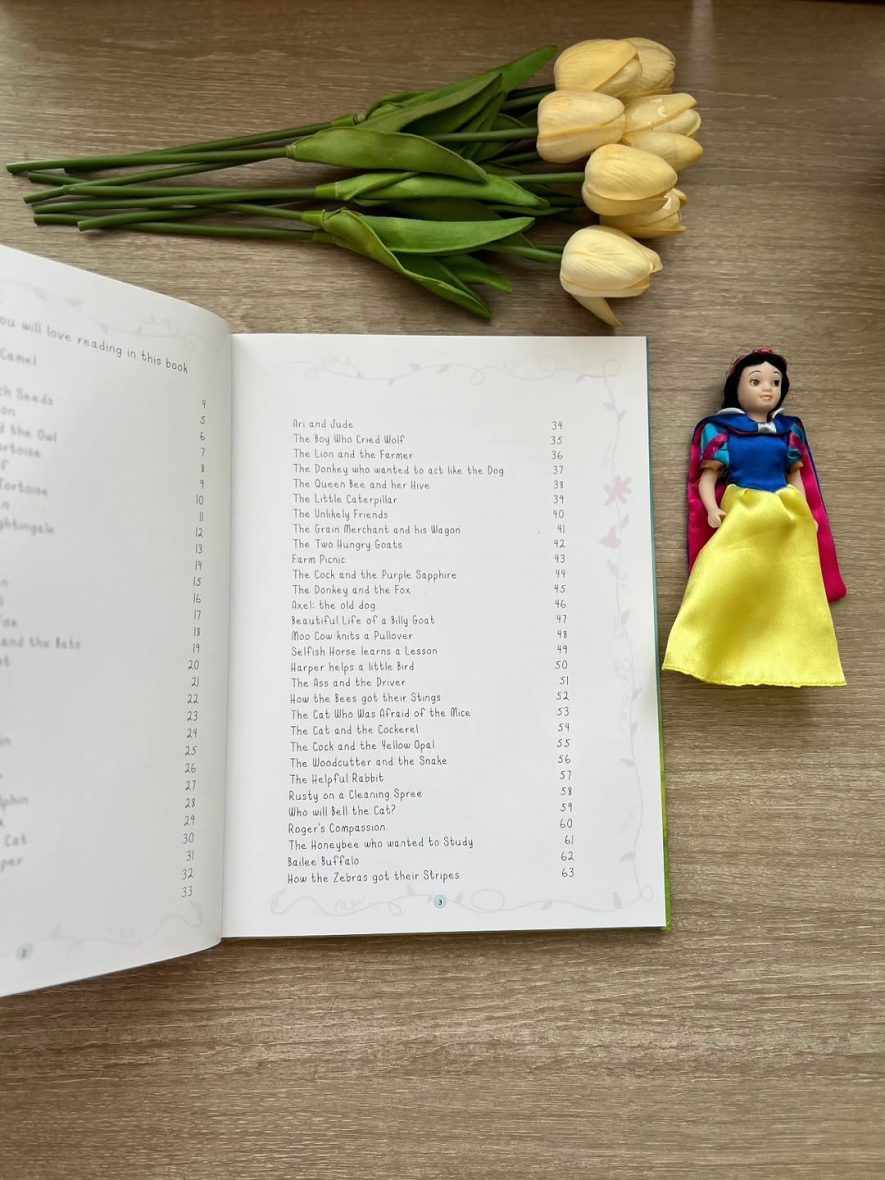 ou will love reading in this book
Camel
4
ch Seeds 5
on 6
d the Owl 7
ortoise 8
f 9
Tortoise 10
n 11
ghtingale 12
13
14
n 15
16
Fox 17
and the Bats 18
19
20
21
22
23
24
25
26
27
lphin 28
29
Cat 30
per 31
32
33
2
Ari and Jude 34
The Boy Who Cried Wolf 35
The Lion and the Farmer 36
The Donkey who wanted to act like the Dog 37
The Queen Bee and her Hive 38
The Little Caterpillar 39
The Unlikely Friends 40
The Grain Merchant and his Wagon 41
The Two Hungry Goats 42
Farm Picnic 43
The Cock and the Purple Sapphire 44
The Donkey and the Fox 45
Axel: the old dog 46
Beautiful Life of a Billy Goat 47
Moo Cow knits a Pullover 48
Selfish Horse learns a Lesson 49
Harper helps a little Bird 50
The Ass and the Driver 51
How the Bees got their Stings 52
The Cat Who Was Afraid of the Mice 53
The Cat and the Cockerel 54
The Cock and the Yellow Opal 55
The Woodcutter and the Snake 56
The Helpful Rabbit 57
Rusty on a Cleaning Spree 58
Who will Bell the Cat? 59
Roger's Compassion 60
The Honeybee who wanted to Study 61
Bailee Buffalo 62
How the Zebras got their Stripes 63
3